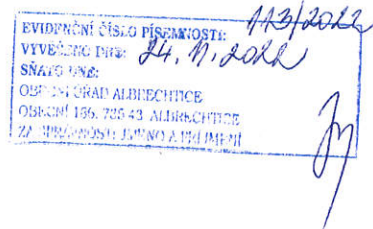 EVIDENČNÍ ČÍSLO PÍSEMNOSTI: 113/2022
VYVĚŠENO DNE: 24. 11. 2022
SŇATO DNE:
OBECNÍ ÚŘAD ALBRECHTICE
OBECNÍ 186, 735 43 ALBRECHTICE
ZA SPRÁVNOST: JMÉNO A PŘÍJMENÍ